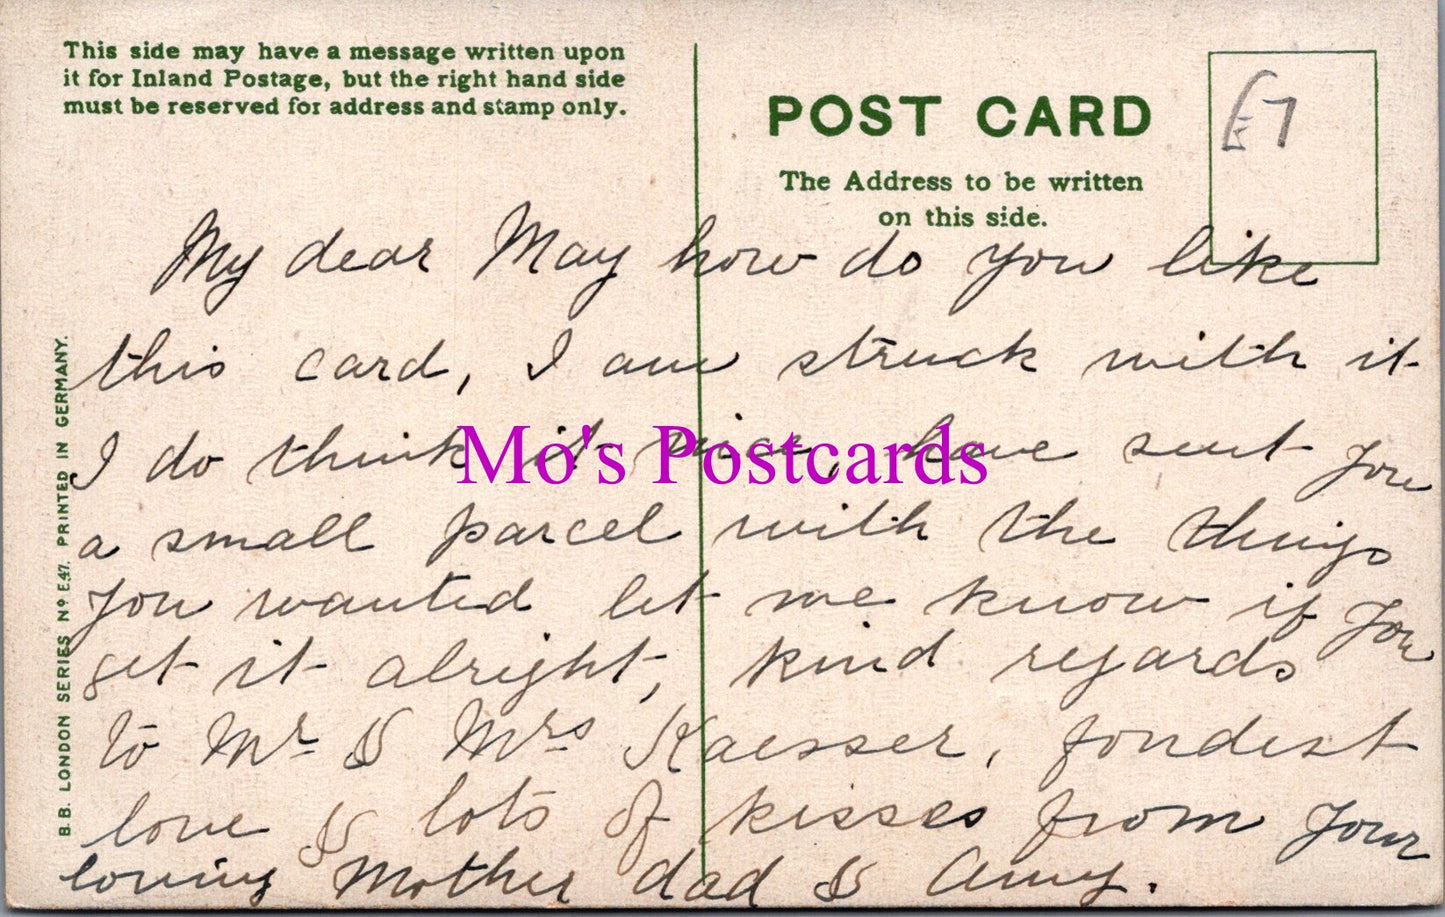 This side may have a message written upon
it for Inland Postage, but the right hand side
must be reserved for address and stamp only.
POST CARD
The Address to be written
on this side.
£7
B.B. LONDON SERIES Nº E.47. PRINTED IN GERMANY.
My dear May how do you like
this card, I am struck with it
I do think it nice, have sent you
a small parcel with the things
you wanted let me know if you
get it alright, kind regards
to Mr & Mrs Kaesser, fondest
love & lots of kisses from your
loving Mother dad & Amy.
Mo's Postcards